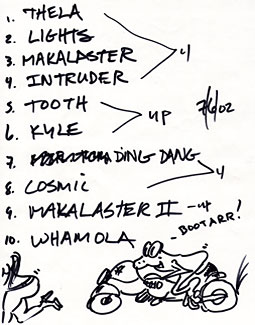 1. THELA
2. LIGHTS
3. MAKALASTER
4. INTRUDER
4
5. TOOTH
6. KYLE
UP
7/6/02
7. DING DANG
8. COSMIC
4
9. MAKALASTER II - 4
10. WHAMOLA
- BOOTARR!